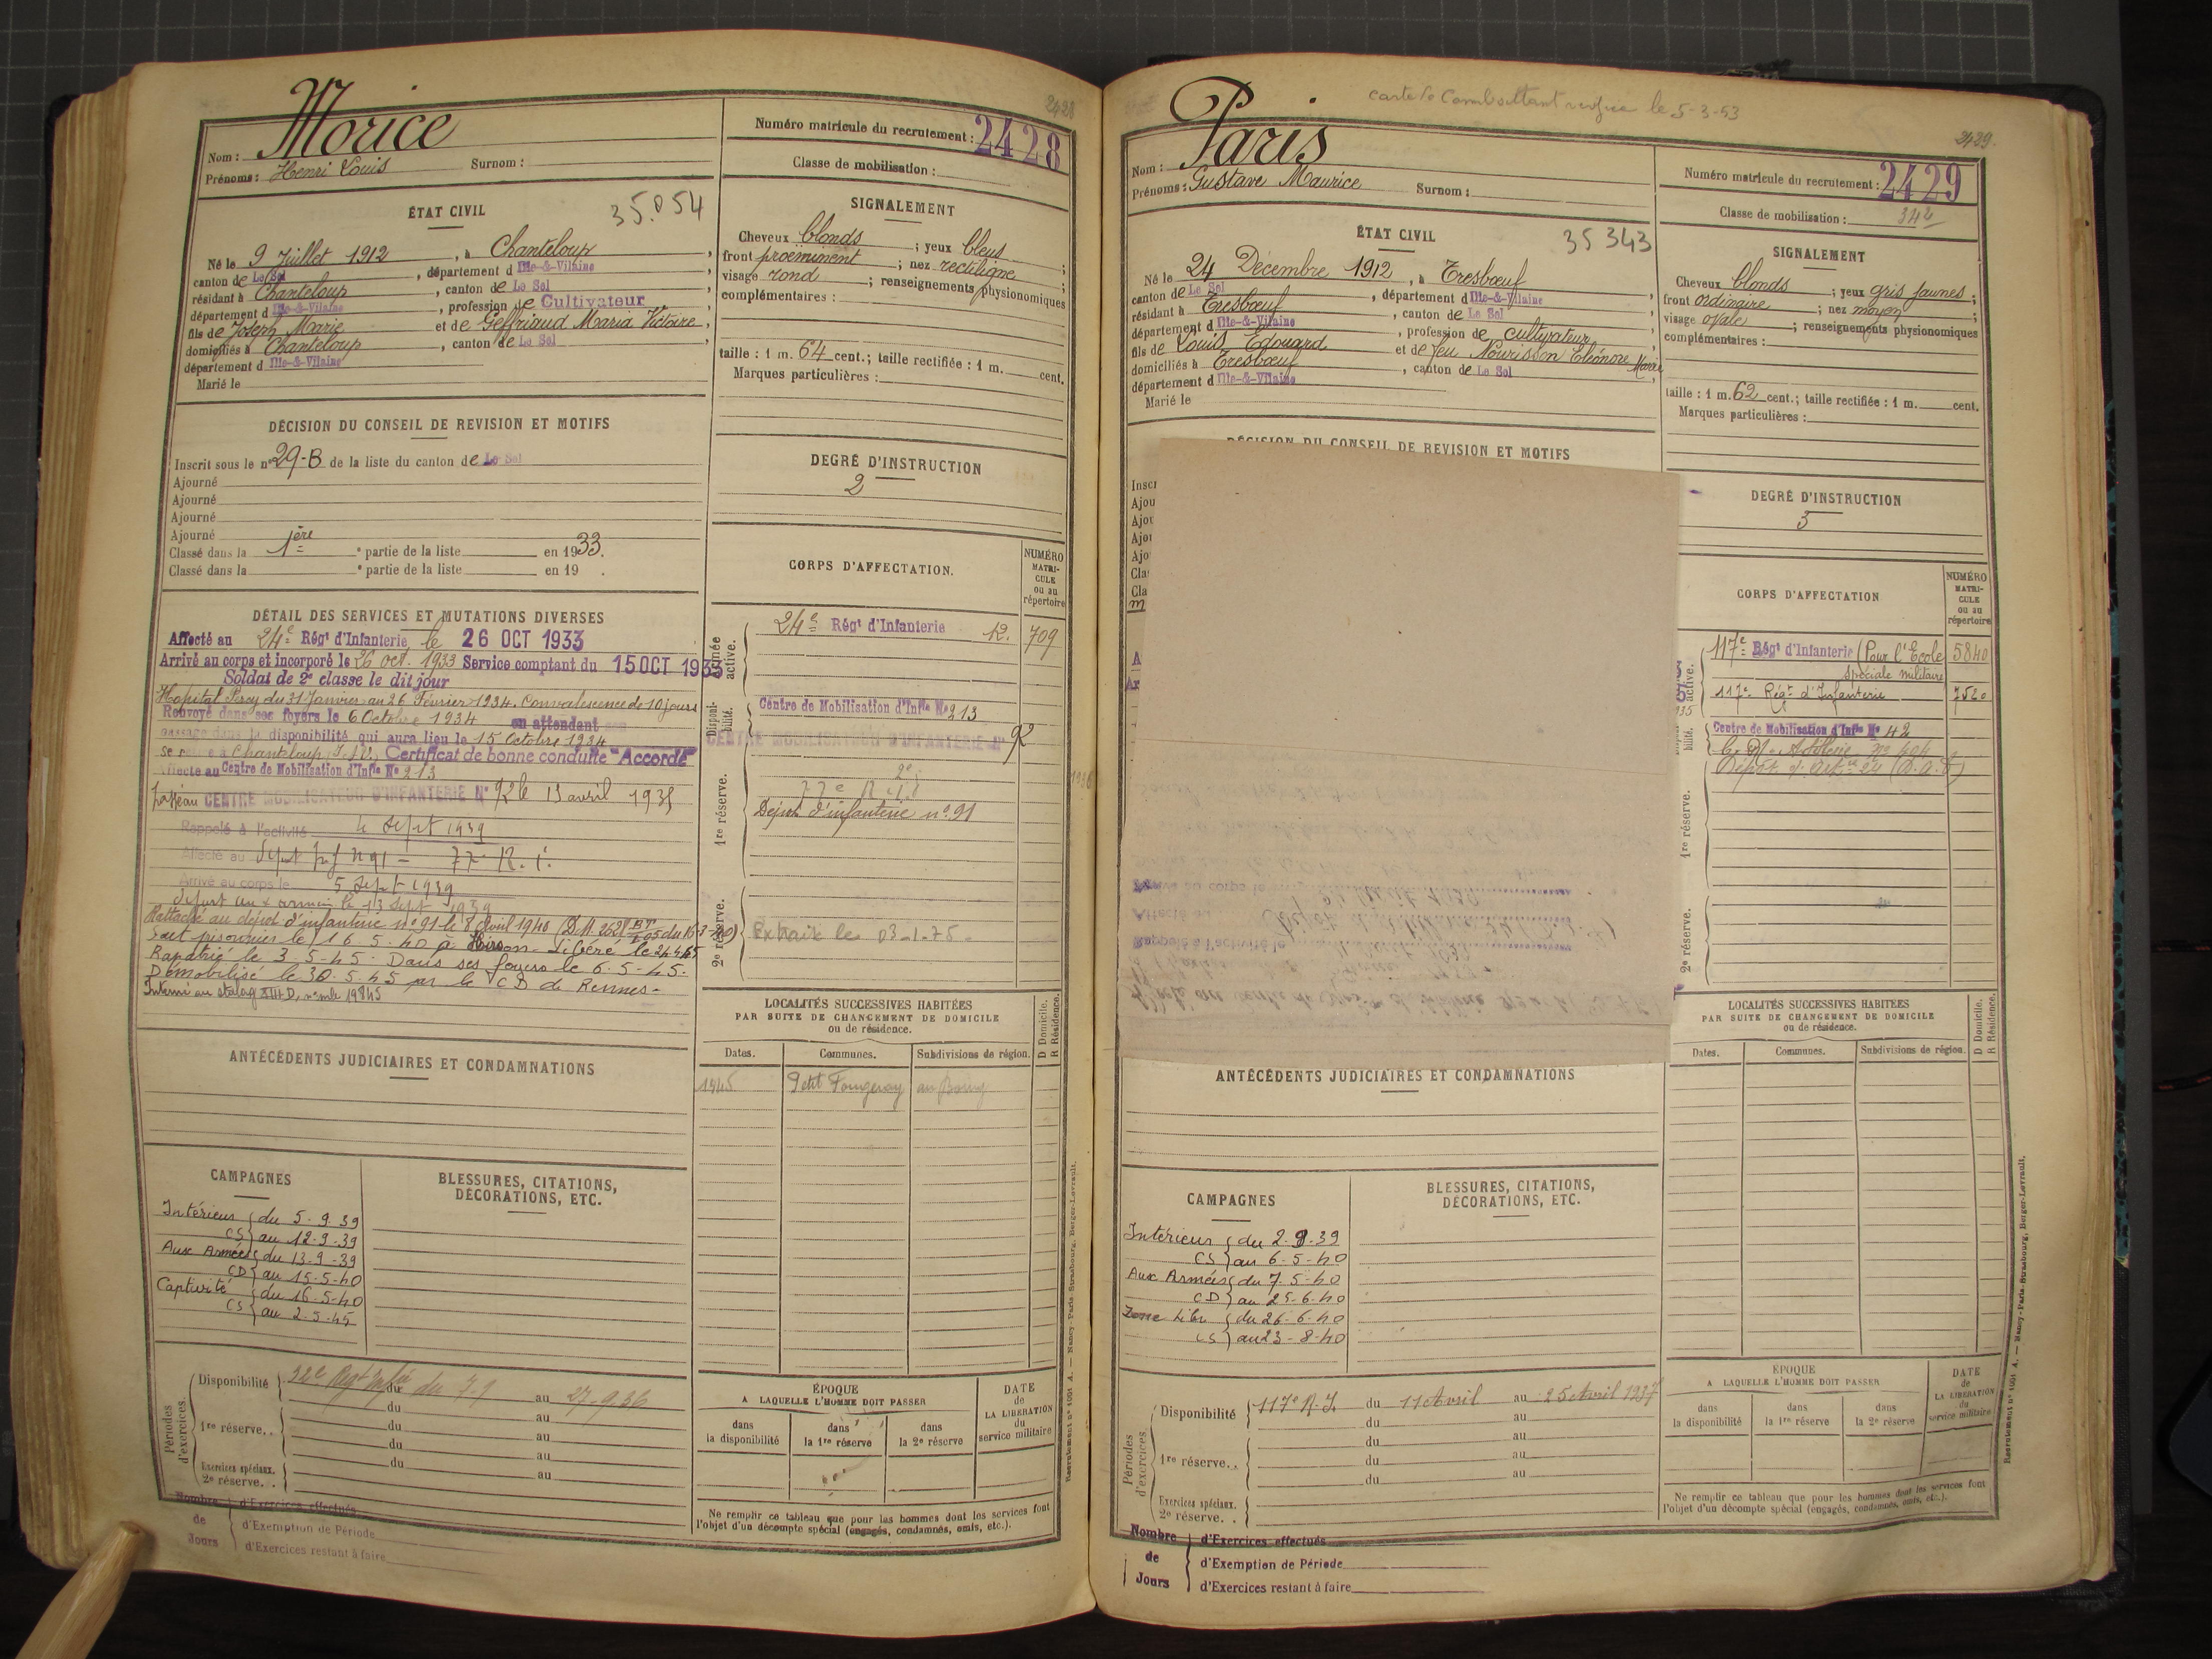 2428
Nom : Morice
Prénoms : Henri Louis Surnom :
Numéro matricule du recrutement : 2428
Classe de mobilisation :
ÉTAT CIVIL 35.054
Né le 9 Juillet 1912, à Chanteloup,
canton de Le Sel, département d Ille-&-Vilaine,
résidant à Chanteloup, canton de Le Sel,
département d Ille-&-Vilaine, profession de Cultivateur,
fils de Joseph Marie et de Geffriaud Maria Victoire,
domiciliés à Chanteloup, canton de Le Sel,
département d Ille-&-Vilaine
Marié le
SIGNALEMENT
Cheveux blonds ; yeux bleus ;
front proéminent ; nez rectiligne ;
visage rond ; renseignements physionomiques
complémentaires :
taille : 1 m. 64 cent.; taille rectifiée : 1 m. cent.
Marques particulières :
DÉCISION DU CONSEIL DE REVISION ET MOTIFS
Inscrit sous le n° 29-B de la liste du canton de Le Sel
Ajourné
Ajourné
Ajourné
Ajourné
Classé dans la 1ère e partie de la liste en 1933.
Classé dans la e partie de la liste en 19 .
DEGRÉ D'INSTRUCTION
2
DÉTAIL DES SERVICES ET MUTATIONS DIVERSES
Affecté au 24e Régt d'Infanterie le 26 OCT 1933
Arrivé au corps et incorporé le 26 oct. 1933 Service comptant du 15 OCT 1933
Soldat de 2e classe le dit jour
Hopital Percy du 31 Janvier au 26 Février 1934. Convalescence de 10 jours
Renvoyé dans ses foyers le 6 Octobre 1934 en attendant son
passage dans la disponibilité qui aura lieu le 15 Octobre 1934
Se retire à Chanteloup I.&V. Certificat de bonne conduite "Accordé"
Affecté au Centre de Mobilisation d'Infie No 213
passé au CENTRE MOBILISATEUR D'INFANTERIE N° 92 le 15 avril 1935
Rappelé à l'activité 4 Sept 1939
Affecté au Dépot Inf N 91 - 77e R.i.
Arrivé au corps le 5 Sept 1939
départ aux armées le 13 Sept 1939
Rattaché au dépot d'infanterie n° 91 le 8 avril 1940
Fait prisonnier le 16.5.40 à Hirson - Libéré le 24.4.45
Rapatrié le 3.5.45. Dans ses foyers le 6.5.45.
Démobilisé le 30.5.45 par le CD de Rennes -
Interné au stalag XIII D, n° mle 19845
CORPS D'AFFECTATION.
NUMÉRO MATRICULE ou au répertoire
24e Régt d'Infanterie 12. 709
active.
Disponibilité.
Centre de Mobilisation d'Infie No 213
CENTRE MOBILISATEUR D'INFANTERIE N° 92
77e R.I.
Dépot d'infanterie n° 91
1re réserve.
2e réserve.
Extrait le 03-1-75.
LOCALITÉS SUCCESSIVES HABITÉES
PAR SUITE DE CHANGEMENT DE DOMICILE
ou de résidence.
D Domicile.
R Résidence.
Dates. Communes. Subdivisions de région.
1945 Petit Fougeray au Bourg
ANTÉCÉDENTS JUDICIAIRES ET CONDAMNATIONS
CAMPAGNES
Intérieur du 5.9.39
CS au 12-9-39
Aux Armées du 13-9-39
CD au 15-5-40
Captivité du 16-5-40
CS au 2-5-45
BLESSURES, CITATIONS,
DÉCORATIONS, ETC.
Périodes d'exercices.
Disponibilité du 7-9 au 27-9.36
du au
1re réserve. . du au
du au
du au
Exercices spéciaux. au
2e réserve. .
Nombre de Jours
d'Exercices effectués
d'Exemption de Période
d'Exercices restant à faire
ÉPOQUE
A LAQUELLE L'HOMME DOIT PASSER
dans la disponibilité
dans la 1re réserve
dans la 2e réserve
DATE de LA LIBERATION du service militaire
Ne remplir ce tableau que pour les hommes dont les services font
l'objet d'un décompte spécial (engagés, condamnés, omis, etc.).
Recrutement n° 1001 A. — Nancy-Paris-Strasbourg, Berger-Levrault.
carte de Combattant le 5-3-53
2429.
Nom : Paris
Prénoms : Gustave Maurice Surnom :
Numéro matricule du recrutement : 2429
Classe de mobilisation : 342
ÉTAT CIVIL 35 343
Né le 24 Décembre 1912, à Tresbœuf
canton de Le Sel, département d Ille-&-Vilaine
résidant à Tresbœuf, canton de Le Sel,
département d Ille-&-Vilaine, profession de cultivateur,
fils de Louis Edouard et de feu Nourisson Eléonore Marie
domiciliés à Tresbœuf, canton de Le Sel,
département d Ille-&-Vilaine
Marié le
SIGNALEMENT
Cheveux blonds ; yeux gris jaunes ;
front ordinaire ; nez moyen ;
visage ovale ; renseignements physionomiques
complémentaires :
taille : 1 m. 62 cent.; taille rectifiée : 1 m. cent.
Marques particulières :
DÉCISION DU CONSEIL DE REVISION ET MOTIFS
DEGRÉ D'INSTRUCTION
3
CORPS D'AFFECTATION
NUMÉRO MATRICULE ou au répertoire
117e Régt d'Infanterie (Pour l'Ecole 5840
spéciale militaire
117e Régt d'Infanterie 7520
Centre de Mobilisation d'Infie No 42
active.
1re réserve.
2e réserve.
LOCALITÉS SUCCESSIVES HABITÉES
PAR SUITE DE CHANGEMENT DE DOMICILE
ou de résidence.
D Domicile.
R Résidence.
Dates. Communes. Subdivisions de région.
ANTÉCÉDENTS JUDICIAIRES ET CONDAMNATIONS
CAMPAGNES
Intérieur du 2.9.39
CS au 6-5-40
Aux Armées du 7.5-40
CD au 25-6-40
Zone Libre du 26-6-40
CS au 23-8-40
BLESSURES, CITATIONS,
DÉCORATIONS, ETC.
Périodes d'exercices.
Disponibilité 117e R.I. du 11 Avril au 25 Avril 1937
du au
1re réserve. . du au
du au
du au
Exercices spéciaux.
2e réserve. .
Nombre de Jours
d'Exercices effectués
d'Exemption de Période
d'Exercices restant à faire
ÉPOQUE
A LAQUELLE L'HOMME DOIT PASSER
dans la disponibilité
dans la 1re réserve
dans la 2e réserve
DATE de LA LIBERATION du service militaire
Ne remplir ce tableau que pour les hommes dont les services font
l'objet d'un décompte spécial (engagés, condamnés, omis, etc.).
Recrutement n° 1001 A. — Nancy-Paris-Strasbourg, Berger-Levrault.